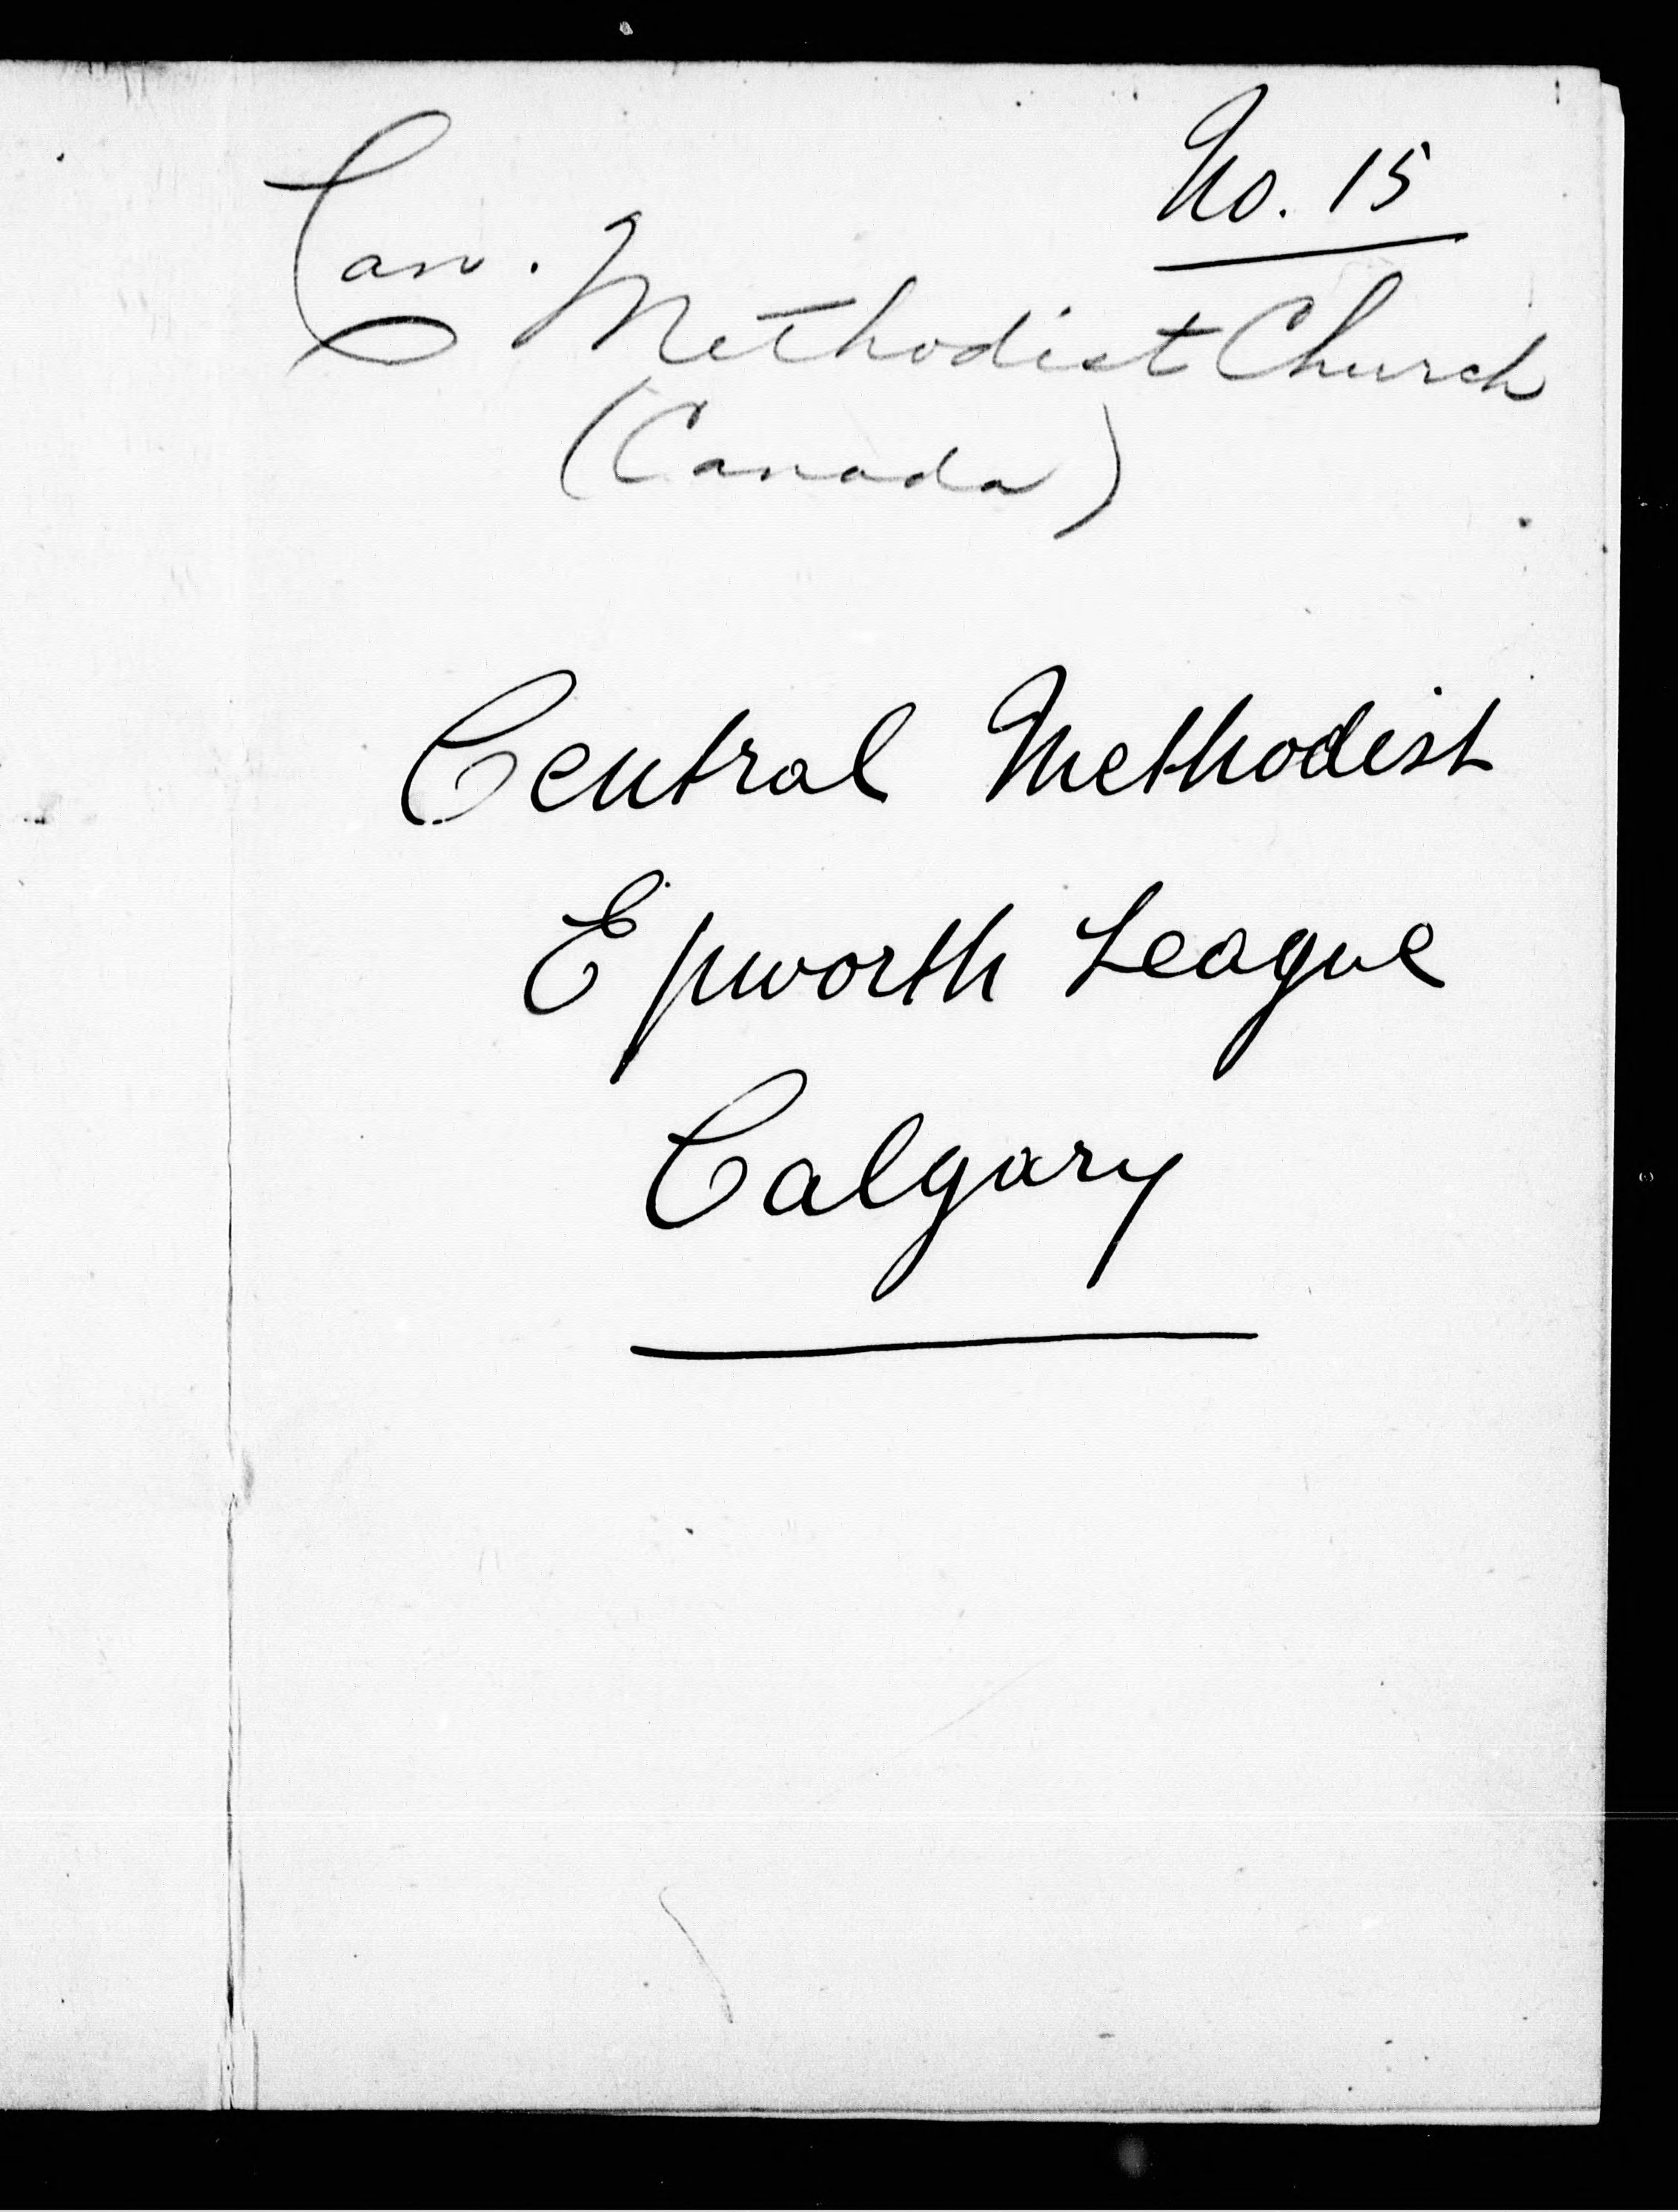 No. 15
Can. Methodist Church
(Canada)
Central Methodist
Epworth League
Calgary